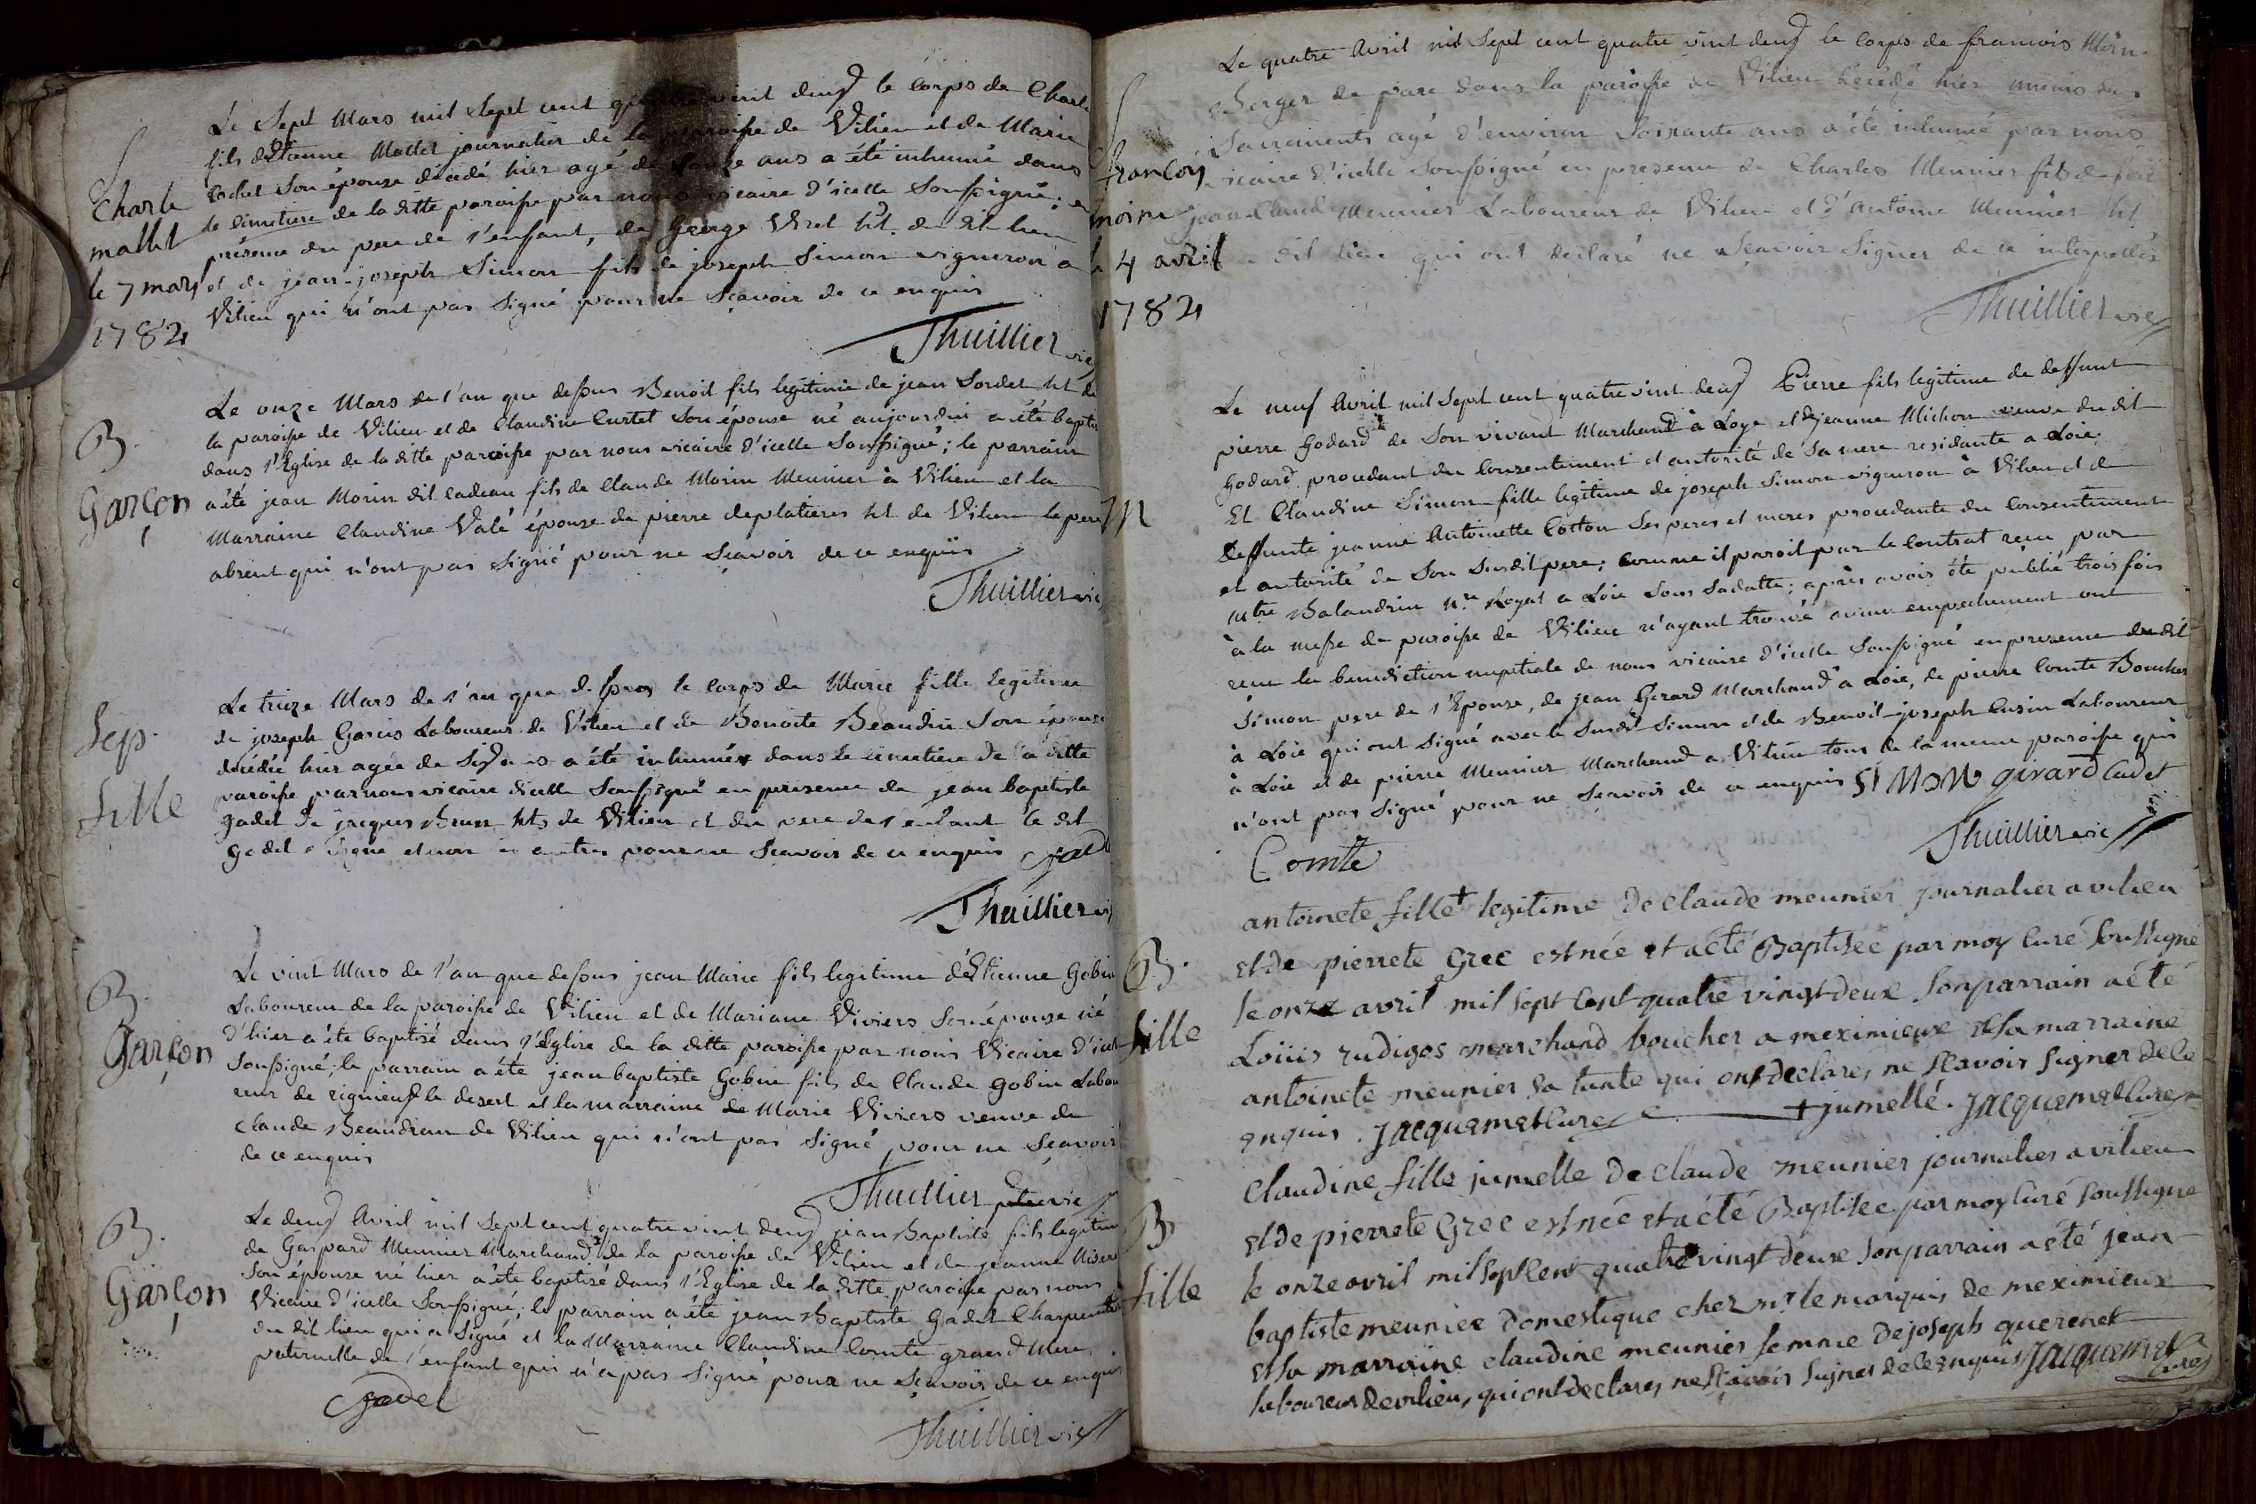 Le Sept Mars mil Sept cent quatre vint deux le Corps de Charle
fils d'Etienne Mallet journalier de la paroisse de Vilieu et de Marie
Son épouse décédé hier agé de ans a été inhumé dans
le cimetiere de la ditte paroisse par nous vicaire d'icelle Soussigné; en
présence du pere de l'enfant, de George Viret ht. du dit lieu
et de jean-joseph Simon fils de joseph Simon vigneron a
Vilieu qui n'ont pas Signé pour ne Sçavoir de ce enquis
Thuillier vic
S
Charle
mallet
le 7 mars
1782
Le onze Mars de l'an que dessus Benoit fils legitime de jean Sordet ht de
la paroisse de Vilieu et de Claudine Curtet Son épouse né aujourdui a été baptisé
dans l'Eglise de la ditte paroisse par nous vicaire d'icelle Soussigné; le parrain
a été jean Morin dit Cadeau fils de Claude Morin Meunier à Vilieu et la
Marraine Claudine Valé épouse de pierre deplatieres ht de Vilieu le pere
absent qui n'ont pas Signé pour ne Sçavoir de ce enquis
Thuillier vic
B.
Garçon
Le treize Mars de l'an que dessus le Corps de Marie fille legitime
de joseph Garcis Laboureur de Vilieu et de Benoite Beaudin Son épouse
décédée hier agée de Six ans a été inhumée dans le cimetiere de la ditte
paroisse par nous vicaire d'icelle Soussigné en presence de jean baptiste
gadet de jacques Brun hts de Vilieu et du pere de l'enfant le dit
gadet a Signé et non les autres pour ne Scavoir de ce enquis
Thuillier vic
Sep.
fille
Le vint Mars de l'an que dessus jean Marie fils legitime d'Etienne Gobin
Laboureur de la paroisse de Vilieu et de Mariane Viviers Son épouse né
d'hier a été baptisé dans l'Eglise de la ditte paroisse par nous Vicaire d'icelle
Soussigné; le parrain a été jean baptiste Gobin fils de Claude gobin Labou
reur de rignieux le desert et la marraine de Marie Viviers veuve de
Claude Beaudran de Vilieu qui n'ont pas Signé pour ne Sçavoir
de ce enquis
Thuillier vic
B.
Garçon
Le deux Avril mil Sept cent quatre vint deux jean Baptiste fils legitime
de Gaspard Meunier Marchand de la paroisse de Vilieu et de jeanne
Son épouse né hier a été baptisé dans l'Eglise de la ditte paroisse par nous
Vicaire d'icelle Soussigné; le parrain a été jean Baptiste Gadet Charpentier
du dit lieu qui a Signé et la Marraine Claudine Comte grand Mere
paternelle de l'enfant qui n'a pas Signé pour ne Sçavoir de ce enquis
Gadet
Thuillier vic
B.
Garçon
Le quatre Avril mil Sept cent quatre vint deux le Corps de francois Morin
berger de parc dans la paroisse de Vilieu décédé hier munis des
Sacraments agé d'environ Soixante ans a été inhumé par nous
vicaire d'icelle Soussigné en presence de Charles Meunier fils de feu
jean-Claude Meunier Laboureur de Vilieu et d'Antoine Meunier ht
du dit lieu qui ont declaré ne Sçavoir Signer de ce interpellés
Thuillier vic
S
francois
morin
le 4 avril
1782
Le neuf Avril mil Sept cent quatre vint deux Pierre fils legitime de deffunt
pierre Godard de Son vivant Marchand à Loye et de jeanne Michon veuve du dit
Godard procedant du Consentement et autorité de Sa mere residante a Loie;
Et Claudine Simon fille legitime de joseph Simon vigneron à Vilieu et de
deffunte jeanne Antoinette Cotton Ses peres et meres procedante du Consentement
et autorité de Son Susdit pere; comme il paroit par le Contrat recu par
mtre Balandrin nre Royal a Loie Sous Sadatte; après avoir été publié trois fois
à la messe de paroisse de Vilieu n'ayant trouvé aucun empechement ont
recu la benediction nuptiale de nous vicaire d'icelle Soussigné en presence du dit
Simon pere de l'Epouse, de jean Girard Marchand à Loie, de pierre Comte Boucher
à Loie qui ont Signé avec le Susdit Simon et de Benoit-joseph Cusin Laboureur
à Loie et de pierre Meunier Marchand a Vilieu tous de la meme paroisse qui
n'ont pas Signé pour ne Sçavoir de ce enquis SIMON girard Cadet
Comte
Thuillier vic
M
antoinete fille + legitime de claude meunier journalier a vilieu
et de pierrete Grec est née et a été Baptisée par moy Curé Soussigné
le onze avril mil sept cent quatre vingt deux Son parrain a été
Loüis rudigos marchand boucher a meximieux et sa marraine
antoinete meunier sa tante qui ont declarés ne Sçavoir Signer de ce
enquis. Jacquemet Curé + jumelle. Jacquemet Curé
B.
fille
claudine fille jumelle de claude meunier journalier a vilieu
et de pierrete Grec est née et a été Baptisée par moy Curé Soussigné
le onze avril mil sept cent quatre vingt deux Son parrain a été jean
baptiste meunier domestique chez mr le marquis de meximieux
et sa marraine claudine meunier femme de joseph querenet
laboureur de vilieu, qui ont declarés ne Sçavoir Signer de ce enquis Jacquemet
Curé
B
fille